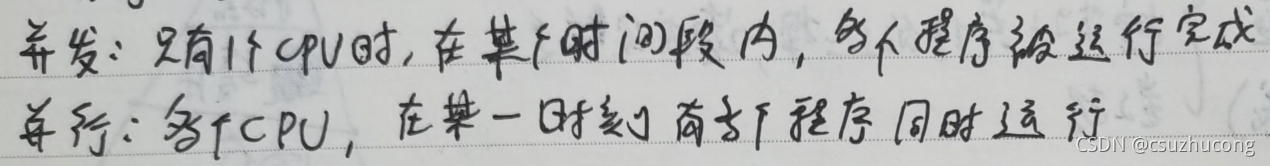 并发：只有1个CPU时，在某个时间段内，多个程序被运行完成
并行：多个CPU，在某一时刻有多个程序同时运行
CSDN @csuzhucong